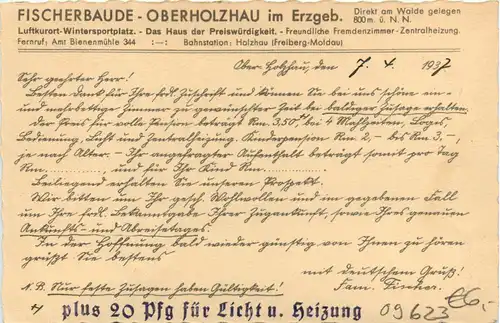 FISCHERBAUDE - OBERHOLZHAU im Erzgeb. Direkt am Walde gelegen 800 m. ü. N.N.
Luftkurort-Wintersportplatz. - Das Haus der Preiswürdigkeit. - Freundliche Fremdenzimmer - Zentralheizung.
Fernruf: Amt Bienenmühle 344 :—: Bahnstation: Holzhau (Freiberg-Moldau)
Ober-Holzhau, den 7. 4. 1937
Sehr geehrter Herr!
Besten Dank für Ihre frdl. Zuschrift und können Sie bei uns schöne ein-
und mehrbettige Zimmer zu gewünschter Zeit bei baldiger Zusage erhalten.
Der Preis für volle Pension beträgt Rm. 3,50 bei 4 Mahlzeiten, Loges,
Bedienung, Licht und Zentralheizung. Kinderpension Rm. 2,- bis Rm 3,-,
je nach Alter. - Ihr angefragter Aufenthalt beträgt somit pro Tag
Rm............ und für Ihr Kind Rm............
Beiliegend erhalten Sie unseren Prospekt.
Wir bitten um Ihr gesch. Wohlwollen und in gegebenen Fall
um Ihre frdl. Bekanntgabe Ihrer Zugankunft, sowie Ihres genauen
Ankunfts- und Abreisetages.
In der Hoffnung bald wieder günstig von Ihnen zu hören
grüßt Sie bestens
mit deutschem Gruß!
N.B. Nur feste Zusagen haben Gültigkeit! Fam.
plus 20 Pfg für Licht u. Heizung
09623 €6,-